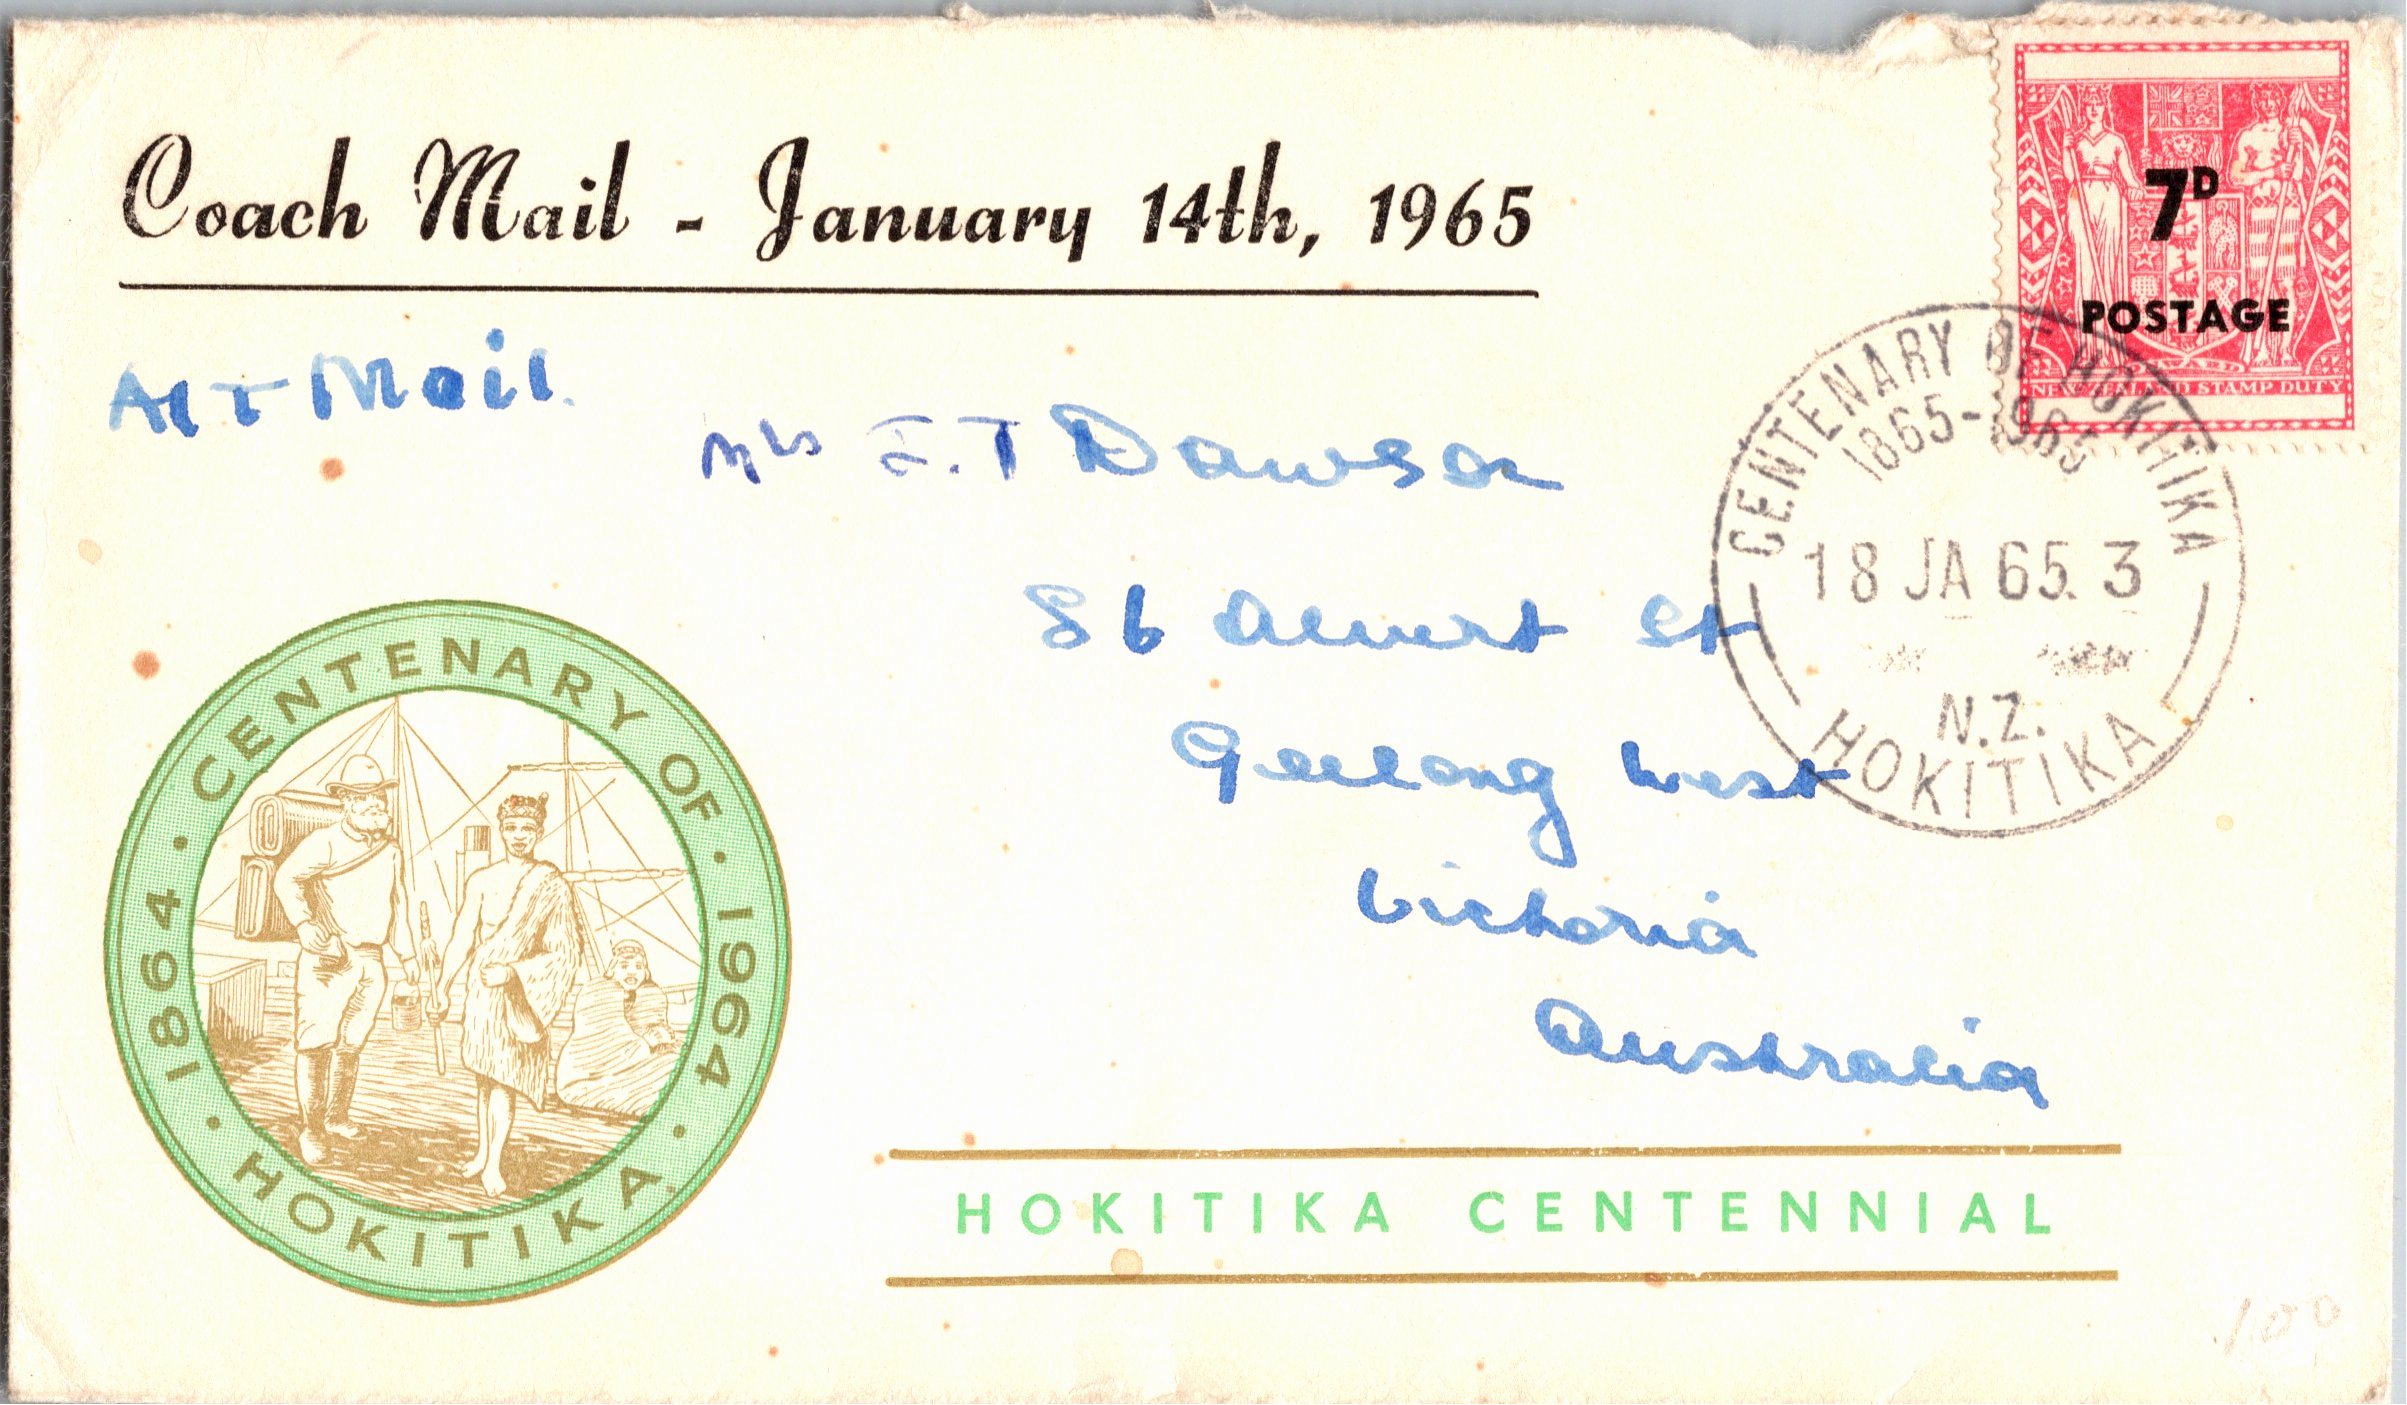 Coach Mail - January 14th, 1965
7D
POSTAGE
NEW ZEALAND STAMP DUTY
Air Mail
CENTENARY OF HOKITIKA
1865-1965
18 JA 65. 3
N.Z.
HOKITIKA
Mrs F.T Dawson
86 Albert St
Geelong West
Victoria
Australia
CENTENARY OF
1864 · 1964
HOKITIKA
HOKITIKA CENTENNIAL
100